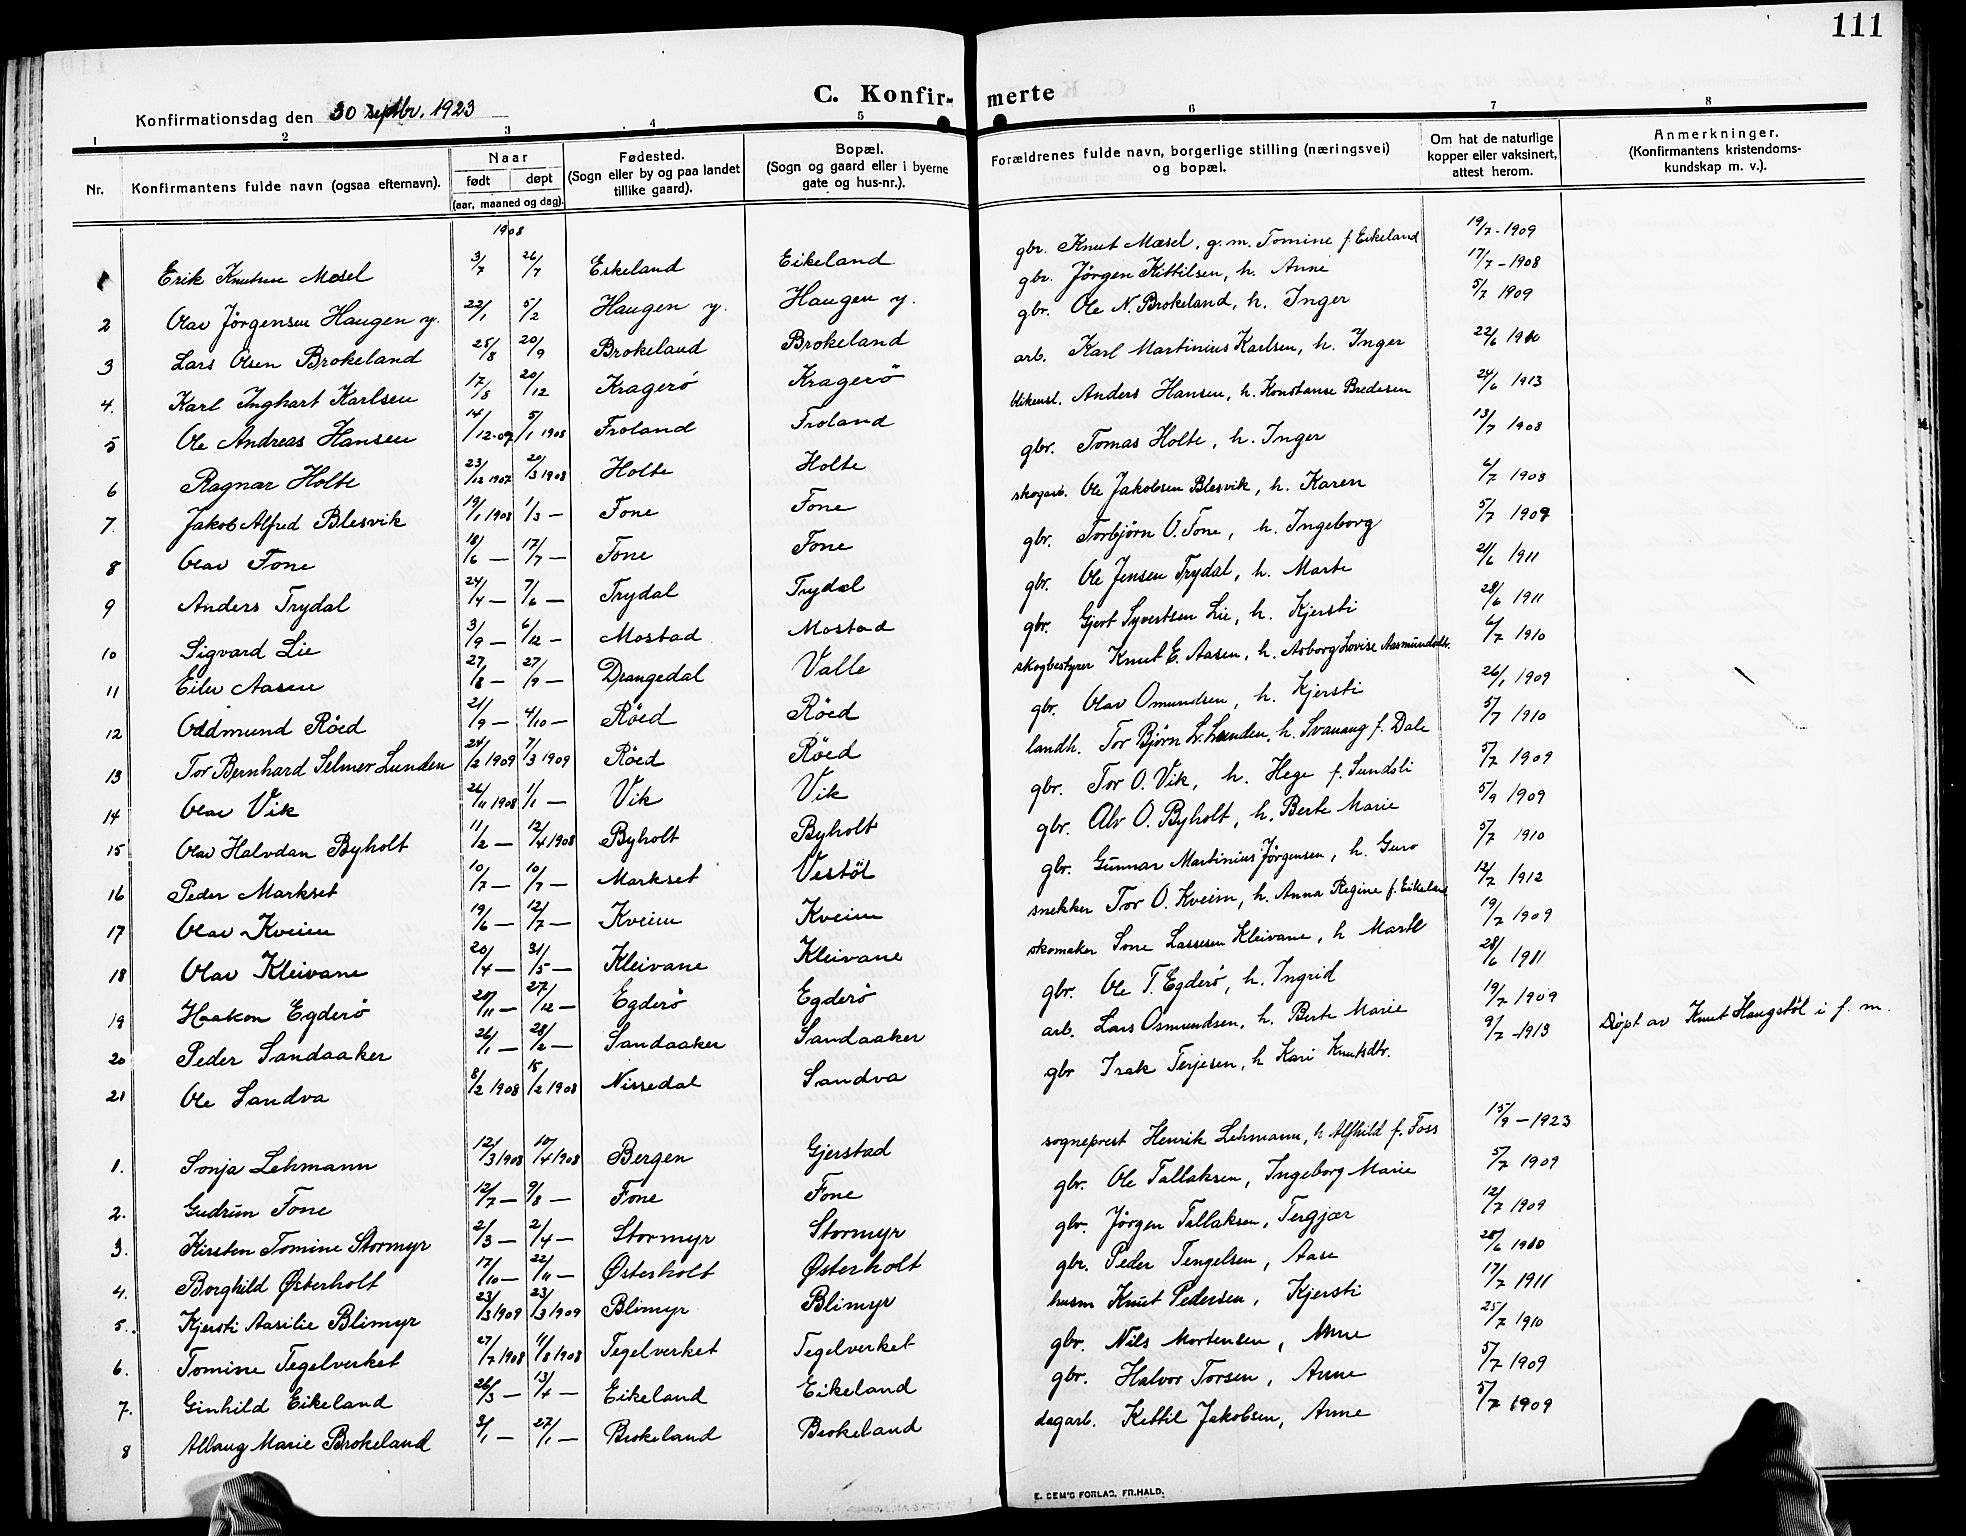 111
C. Konfirmerte
Konfirmationsdag den 30 septbr. 1923
1 2 3 4 5 6 7 8
Nr. Konfirmantens fulde navn (ogsaa efternavn). Naar født døpt (aar, maaned og dag). Fødested. (Sogn eller by og paa landet tillike gaard). Bopæl. (Sogn og gaard eller i byerne gate og hus-nr.). Forældrenes fulde navn, borgerlige stilling (næringsvei) og bopæl. Om hat de naturlige kopper eller vaksinert, attest herom. Anmerkninger. (Konfirmantens kristendomskundskap m. v.).
1908
Erik Knutsen Mæsel 3/7 26/7 Eikeland Eikeland gbr. Knut Mæsel, g. m. Tomine f. Eikeland 19/7-1909
2 Olav Jørgensen Haugen y. 22/1 5/2 Haugen y. Haugen y. gbr. Jørgen Kittilsen, h. Anne 17/7-1908
3 Lars Olsen Brokeland 25/8 20/9 Brokeland Brokeland gbr. Ole N. Brokeland, h. Inger 5/7 1909
4. Karl Inghart Karlsen 17/8 20/12 Kragerö Kragerö arb. Karl Martinius Karlsen, h. Inger 22/6 1910
5 Ole Andreas Hansen 14/12-07 5/1 1908 Froland Froland blikensl. Anders Hansen, h. Konstanse Bredesen 24/6 1913
6 Ragnar Holte 23/12 1907 20/3 1908 Holte Holte gbr. Tomas Holte, h. Inger 13/7 1908
7. Jakob Alfred Blesvik 19/1 1908 1/3 — Fone Fone skogarb. Ole Jakobsen Blesvik, h. Karen 6/7 1908
8 Olav Fone 18/6 — 17/7 — Fone Fone gbr. Torbjörn O. Fone, h. Ingeborg 5/7 1909
9 Anders Trydal 24/4 — 7/6 — Trydal Trydal gbr. Ole Jensen Trydal, h. Marte 21/6 1911
10 Sigvard Lie 3/9 — 6/12 — Mostad Mostad gbr. Gjert Syvertsen Lie, h. Kjersti 28/6 1911
11 Eilev Aasen 27/8 — 27/9 — Drangedal Valle skogbestyrer Knut E. Aasen, h. Asborg Lovise Aasmundsdtr. 6/7 1910
12 Oddmund Röed 21/9 — 4/10 — Röed Röed gbr. Olav Omundsen, h. Kjersti 26/1 1909
13 Tor Bernhard Selmer Lunden 24/2 1909 7/3 1909 Röed Röed landh. Tor Björn Lr. Lunden, h. Svanaug f. Dale 5/7 1910
14 Olav Vik 26/11 1908 1/1 — Vik Vik gbr. Tor O. Vik, h. Hege f. Sundsli 5/7 1909
15 Olav Halvdan Byholt 11/2 — 12/4 1908 Byholt Byholt gbr. Alv O. Byholt, h. Berte Marie 5/9 1909
16 Peder Markset 10/7 — 10/7 — Markset Vestöl gbr. Gunnar Martinius Jörgensen, h. Guro 5/7 1910
17 Olav Kveim 19/6 — 12/7 — Kveim Kveim snekker Tor O. Kveim, h. Anna Regine f. Eikeland 12/7 1912
18 Olav Kleivane 20/4 — 31/5 — Kleivane Kleivane skomaker Sone Lassesen Kleivane, h Marte 19/7 1909
19 Haakon Egderö 20/11 — 27/12 — Egderö Egderö gbr. Ole T. Egderö, h. Ingrid 28/6 1911
20 Peder Sandaaker 26/1 — 28/2 — Sandaaker Sandaaker arb. Lars Osmundsen, h. Berte Marie 19/7 1909
21 Ole Sandva 8/2 1908 15/2 1908 Nissedal Sandva gbr Isak Terjesen, h Kari Knutsdtr. 9/7-1913 Döpt av Knut Haugstöl i f. m.
1. Sonja Lehmann 12/3 1908 10/4 1908 Bergen Gjerstad sogneprest Henrik Lehmann, h Alfhild f. Foss 15/9-1923
2. Gudrun Fone 12/7 — 9/8 — Fone Fone gbr. Ole Tallaksen, Ingeborg Marie 5/7 1909
3. Kirsten Tomine Stormyr 2/3 — 2/4 — Stormyr Stormyr gbr. Jörgen Tallaksen, Tergjær 12/7 1909
4. Borghild Østerholt 17/10 — 22/11 — Østerholt Østerholt gbr. Peder Tengelsen, Aase 28/6 1910
5. Kjersti Aasilie Blimyr 23/3 1909 23/3 1909 Blimyr Blimyr husm Knut Pedersen, Kjersti 17/7 1911
6. Tomine Tegelverket 27/7 1908 11/8 1908 Tegelverket Tegelverket gbr. Nils Mortensen, Anne 25/7 1910
7. Ginhild Eikeland 26/3 — 13/4 — Eikeland Eikeland gbr. Halvor Torsen, Anne 5/7 1909
8 Albaug Marie Brokeland 3/1 — 27/1 — Brokeland Brokeland dagarb. Kettil Jakobsen, Anne 5/7 1909
E. SEM'S FORLAG, FR.HALD.